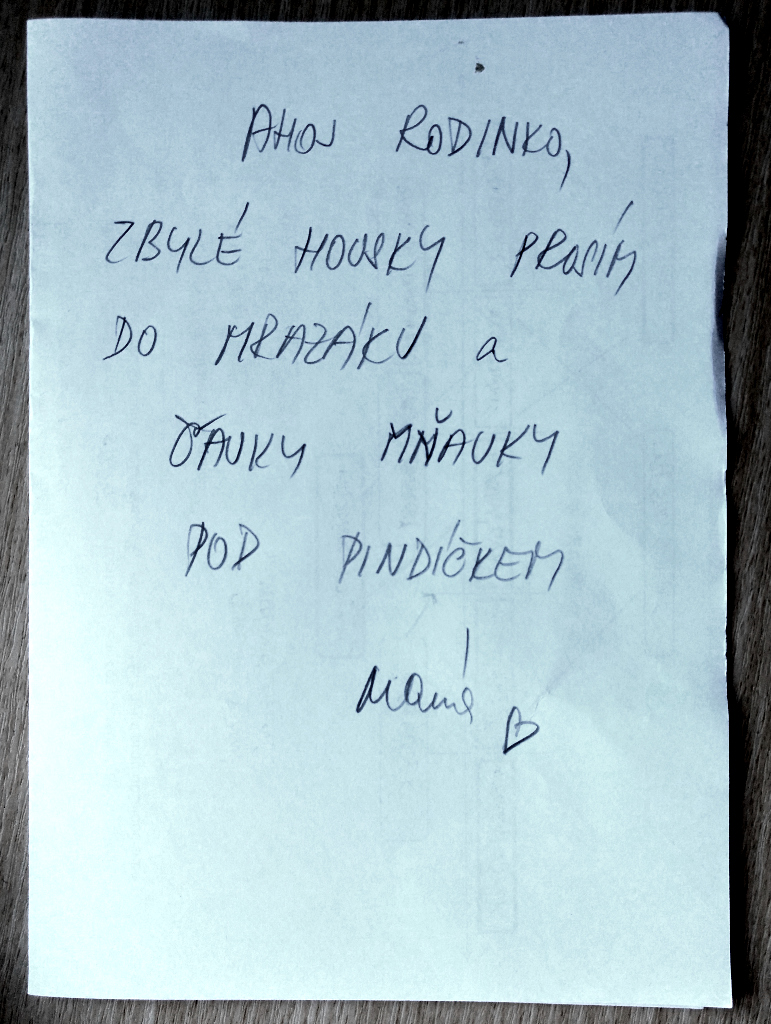 AHOJ RODINKO,
ZBYLÉ HOUSKY PROSÍM
DO MRAZÁKU a
ČAUKY MŇAUKY
POD PINDÍČKEM
Mamé